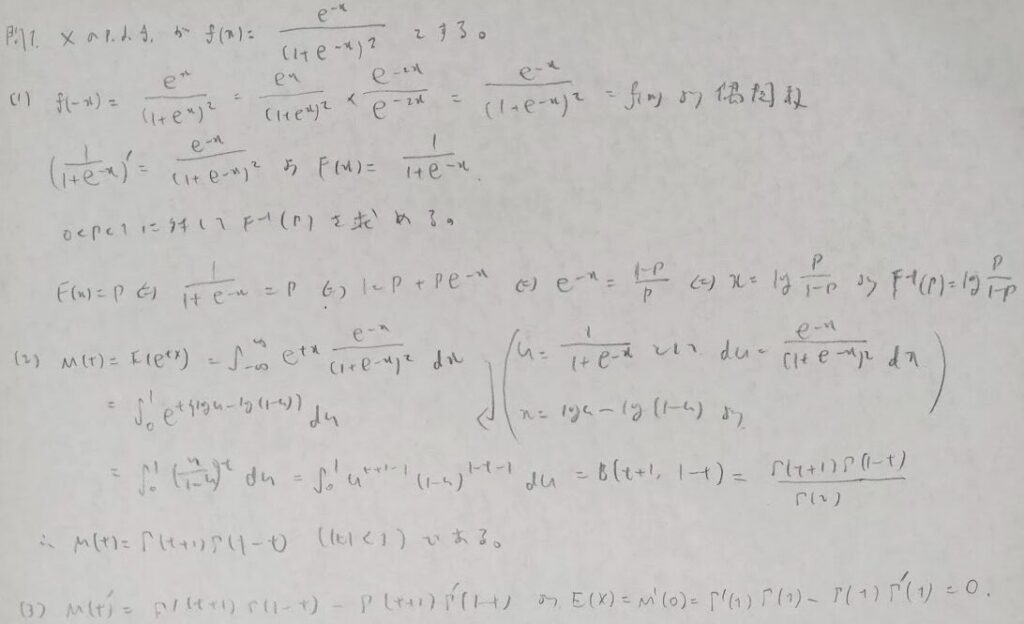 問1. X の p.d.f. が f(x) = e^{-x}/(1+e^{-x})^2 とする。
(1) f(-x) = e^x/(1+e^x)^2 = e^x/(1+e^x)^2 × e^{-2x}/e^{-2x} = e^{-x}/(1+e^{-x})^2 = f(x) より 偶関数
(1/(1+e^{-x}))' = e^{-x}/(1+e^{-x})^2 より F(x) = 1/(1+e^{-x}).
0<p<1 に対して F^{-1}(p) を求める。
F(x) = p ⇔ 1/(1+e^{-x}) = p ⇔ 1 = p + pe^{-x} ⇔ e^{-x} = (1-p)/p ⇔ x = log p/(1-p) より F^{-1}(p) = log p/(1-p)
(2) M(t) = E(e^{tX}) = ∫_{-∞}^{∞} e^{tx} e^{-x}/(1+e^{-x})^2 dx ( u = 1/(1+e^{-x}) として du = e^{-x}/(1+e^{-x})^2 dx
= ∫_0^1 e^{t(log u - log(1-u))} du x = log u - log(1-u) より )
= ∫_0^1 (u/(1-u))^t du = ∫_0^1 u^{t+1-1} (1-u)^{1-t-1} du = B(t+1, 1-t) = Γ(t+1)Γ(1-t)/Γ(2)
∴ M(t) = Γ(t+1)Γ(1-t) (|t|<1) である。
(3) M(t)' = Γ'(t+1)Γ(1-t) - Γ(t+1)Γ'(1-t) より E(X) = M'(0) = Γ'(1)Γ(1) - Γ(1)Γ'(1) = 0.